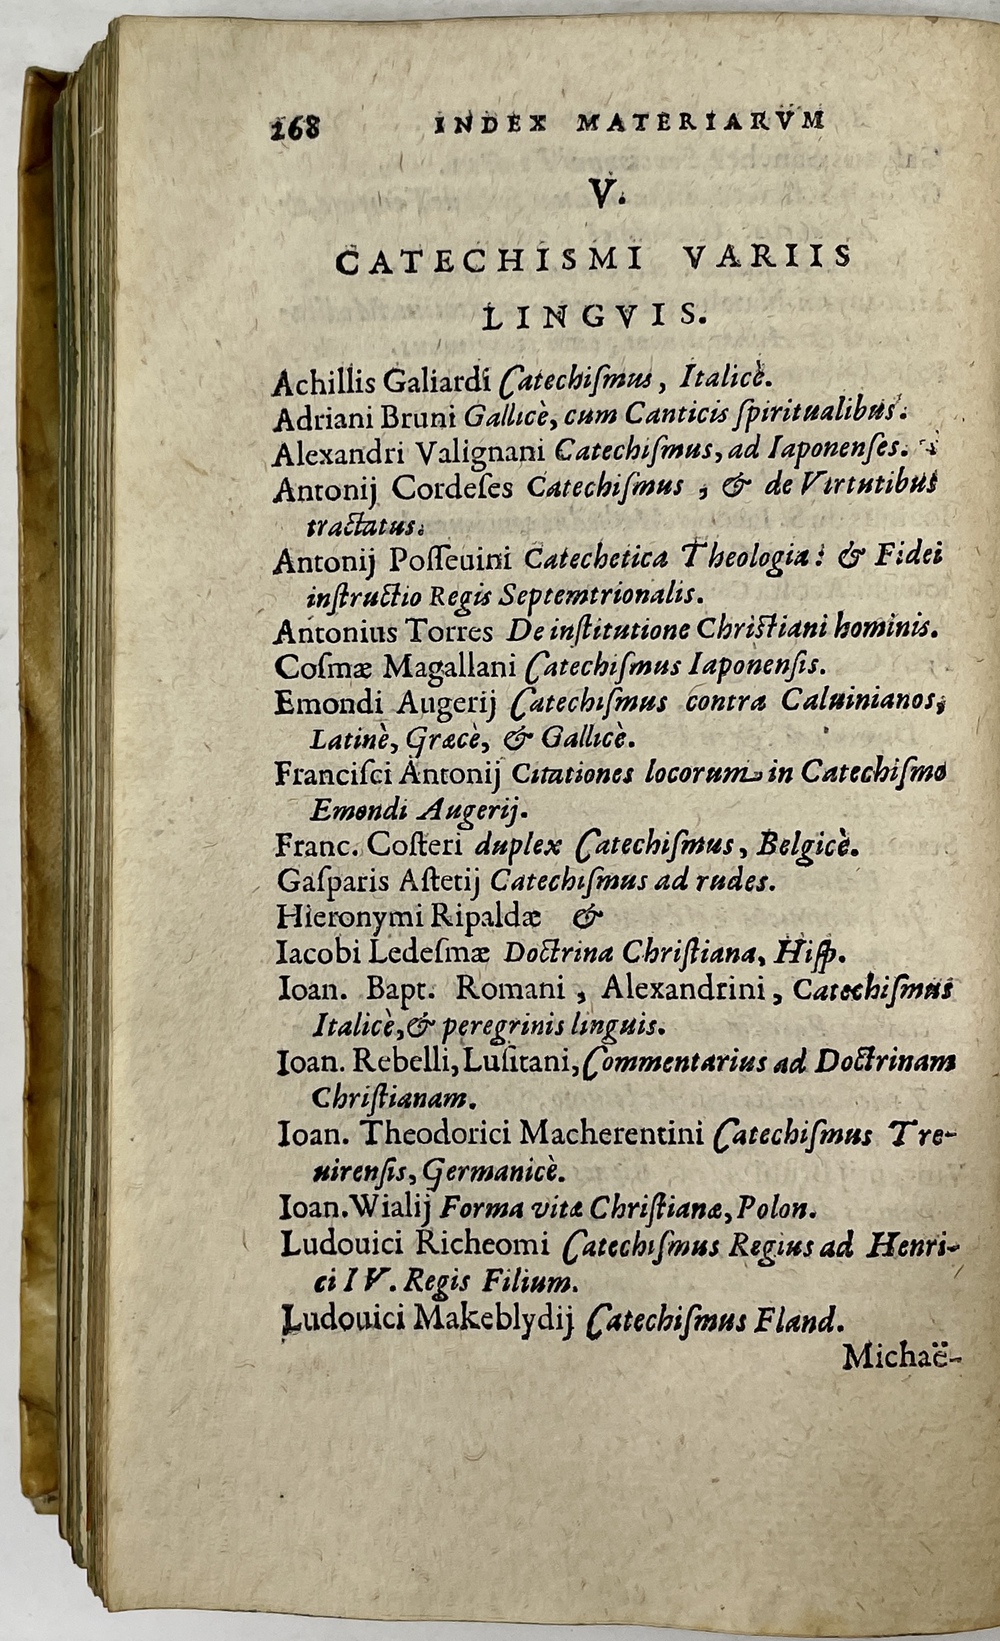 268 INDEX MATERIARVM
V.
CATECHISMI VARIIS
LINGVIS.
Achillis Galiardi Catechiſmus, Italicè.
Adriani Bruni Gallicè, cum Canticis ſpiritualibus.
Alexandri Valignani Catechiſmus, ad Iaponenſes.
Antonij Cordeſes Catechiſmus, & de Virtutibus
tractatus.
Antonij Poſſeuini Catechetica Theologia: & Fidei
inſtructio Regis Septemtrionalis.
Antonius Torres De inſtitutione Chriſtiani hominis.
Coſmæ Magallani Catechiſmus Iaponenſis.
Emondi Augerij Catechiſmus contra Caluinianos,
Latinè, Græcè, & Gallicè.
Franciſci Antonij Citationes locorum in Catechiſmo
Emondi Augerij.
Franc. Coſteri duplex Catechiſmus, Belgicè.
Gaſparis Aſtetij Catechiſmus ad rudes.
Hieronymi Ripaldæ &
Iacobi Ledeſmæ Doctrina Chriſtiana, Hiſp.
Ioan. Bapt. Romani, Alexandrini, Catechiſmus
Italicè, & peregrinis linguis.
Ioan. Rebelli, Luſitani, Commentarius ad Doctrinam
Chriſtianam.
Ioan. Theodorici Macherentini Catechiſmus Tre-
uirenſis, Germanicè.
Ioan. Wialij Forma vitæ Chriſtianæ, Polon.
Ludouici Richeomi Catechiſmus Regius ad Henri-
ci IV. Regis Filium.
Ludouici Makeblydij Catechiſmus Fland.
Michaë-